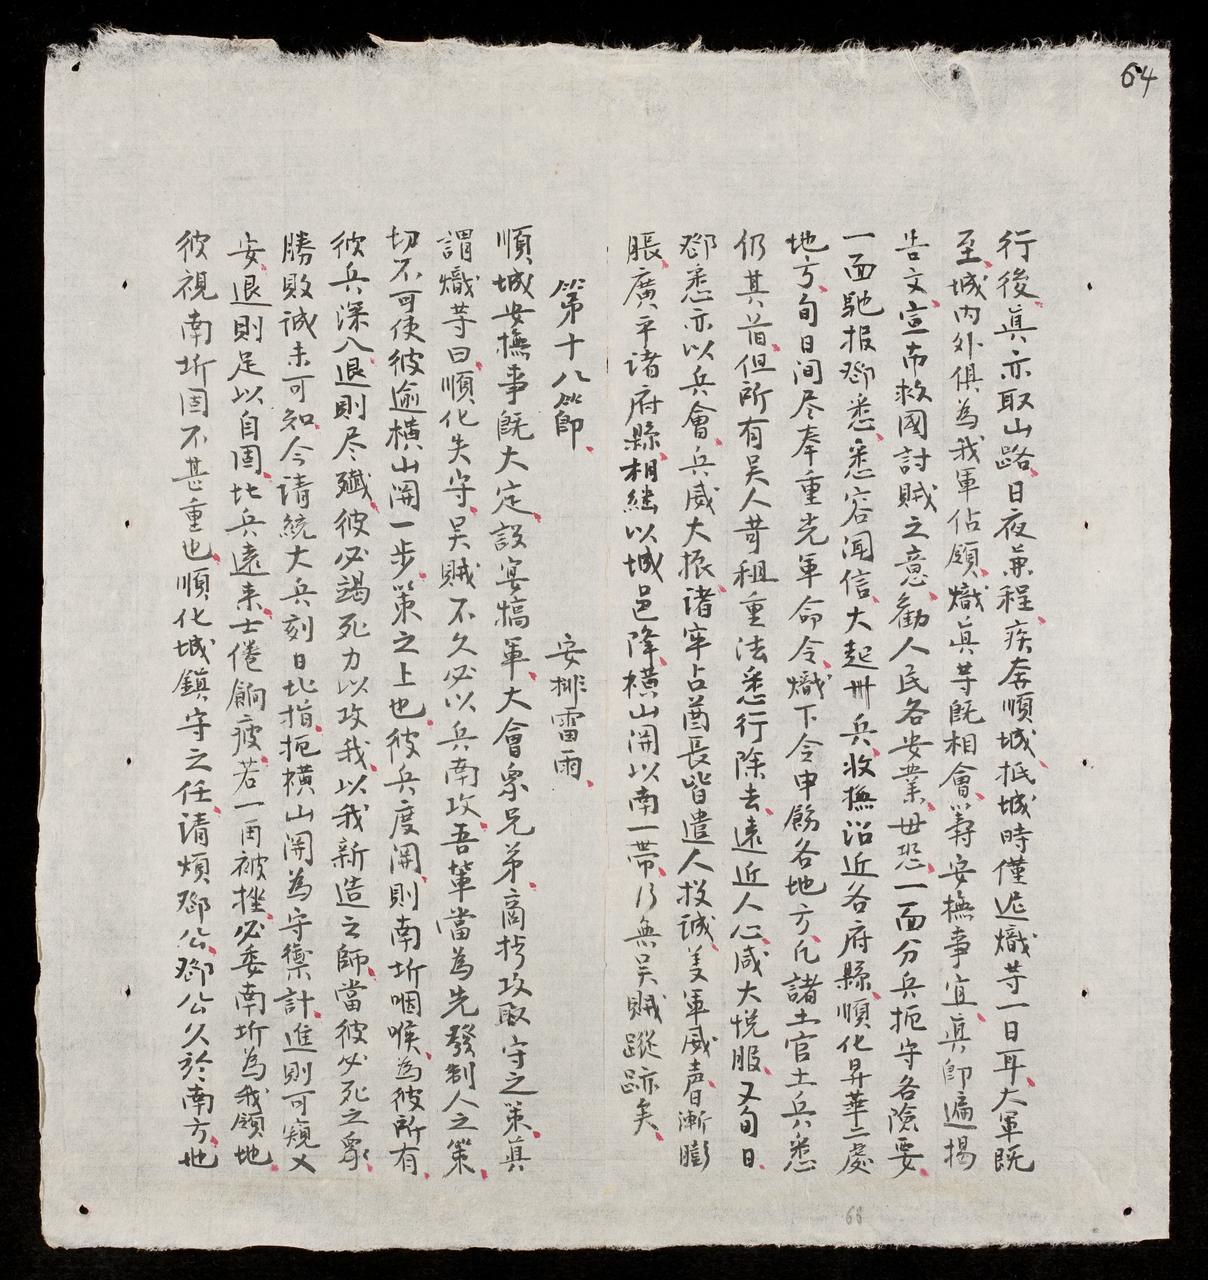 64
行後眞亦取山路日夜兼程疾奔順城抵城時僅遲熾等一日耳大軍既
至城內外俱為我軍佔領熾眞等既相會籌安撫事宜眞即遍揚
告文宣布救國討賊之意勸人民各安業毋恐一面分兵扼守各險要
一面馳報鄧悉悉容聞信大起卌兵收撫沿近各府縣順化昇華二處
地方旬日間尽奉重光軍命令熾下令申飭各地方凡諸土官土兵悉
仍其旧但所有吳人苛租重法悉行除去遠近人心咸大悅服又旬日
鄧悉亦以兵會兵威大振諸牢占酋長皆遣人投誠義軍威聲漸膨
脹廣平諸府縣相継以城邑降橫山関以南一帶乃無吳賊蹤跡矣
第十八節 安排雷雨
順城安撫事既大定設宴犒軍大會衆兄弟商扵攻取守之策眞
謂熾等曰順化失守吳賊不久必以兵南攻吾輩當為先發制人之策
切不可使彼逾橫山関一步策之上也彼兵度関則南圻咽喉為彼所有
彼兵深入退則尽殲彼必竭死力以攻我以我新造之師當彼必死之衆
勝敗誠未可知今請統大兵刻日北指扼橫山関為守禦計進則可窺乂
安退則足以自固北兵遠来士倦餉疲若一再被挫必委南圻為我領地
彼視南圻固不甚重也順化城鎮守之任請煩鄧公鄧公久於南方也
68